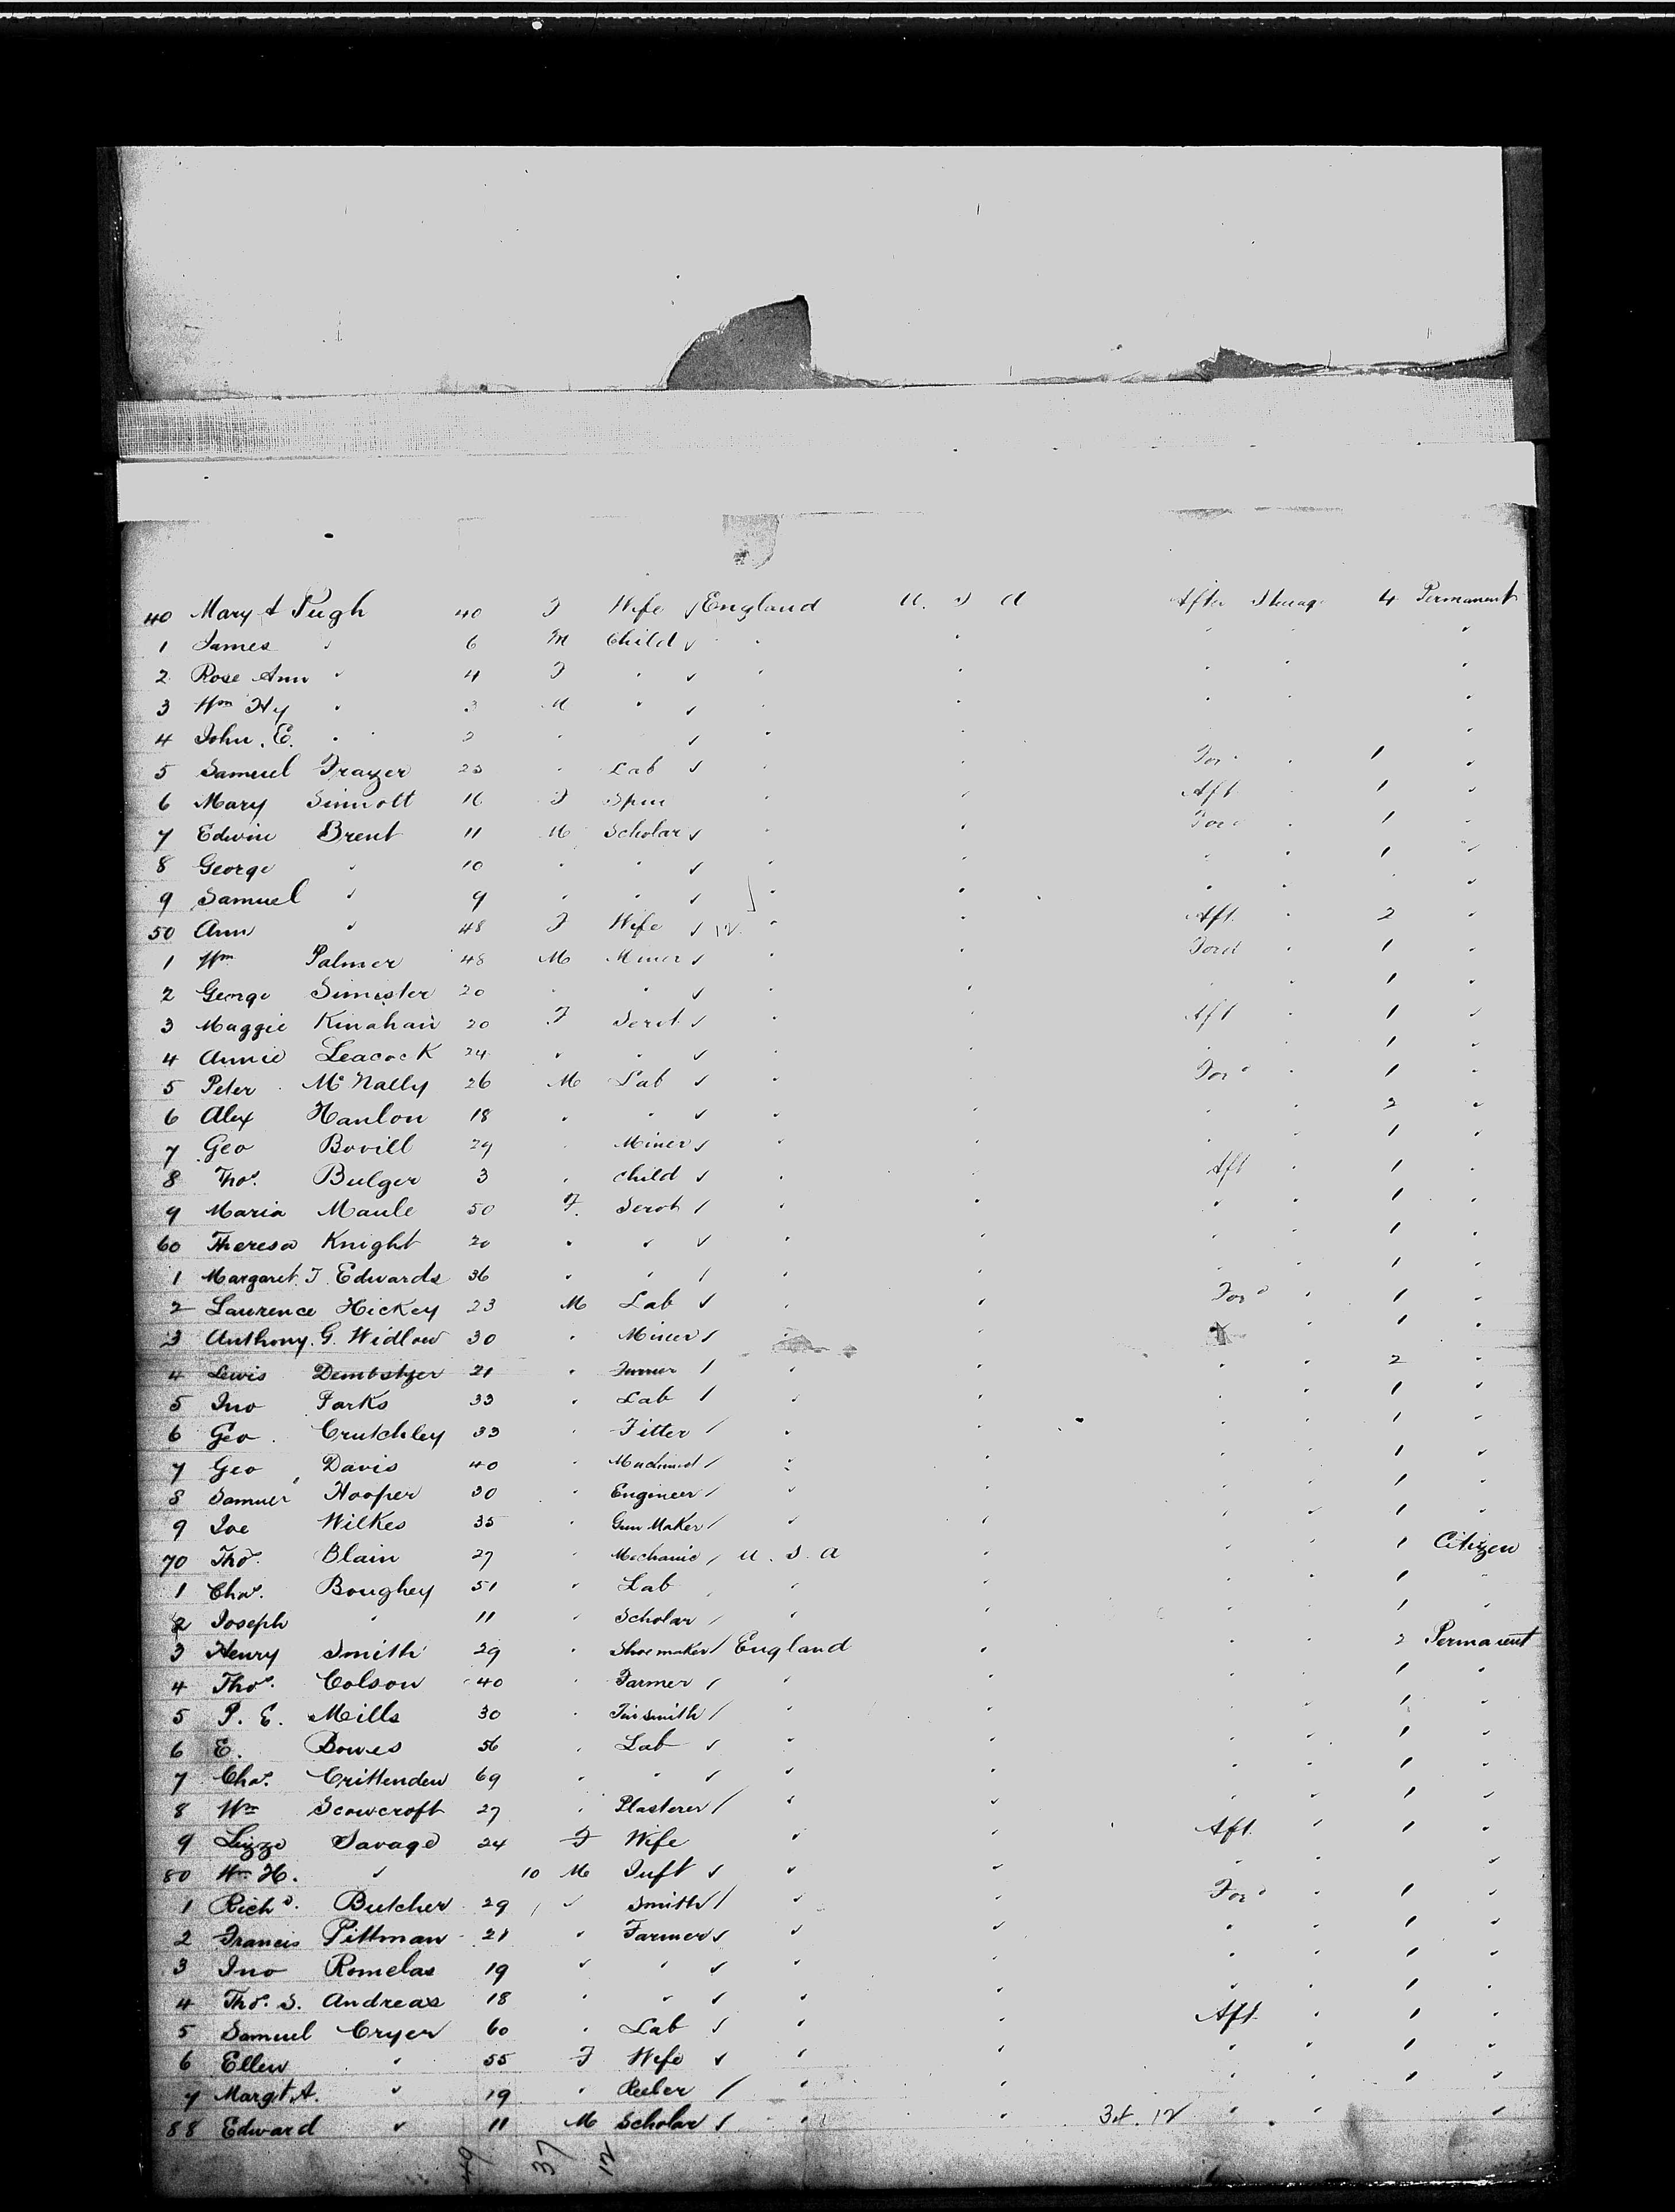 40 Mary A Pugh 40 F Wife England U. S. A After Steerage 4 Permanent
1 James " 6 M Child " " " " "
2 Rose Ann " 4 F " " " " " "
3 Wm Hy " 3 M " " " " " "
4 John. E. " " " " " "
5 Samuel Frazer 23 " Lab " " For " 1 "
6 Mary Sinnott 16 F Spin " " Aft " 1 "
7 Edwin Brent 11 M Scholar " " Ford " 1 "
8 George " 10 " " " " " " 1 "
9 Samuel " 9 " " " " " " "
50 Ann " 48 F Wife 12 " " Aft. " 2 "
1 Wm Palmer 48 M Miner " " Ford " 1 "
2 George Simister 20 " " " " " " 1 "
3 Maggie Kinahan 20 F Servt " " Aft " 1 "
4 Annie Leacock 24 " " " " " " 1 "
5 Peter McNally 26 M Lab " " Ford " 1 "
6 Alex Hanlon 18 " " " " " " 2 "
7 Geo Bovill 29 " Miner " " " " 1 "
8 Thos. Bulger 3 " Child " " Aft " 1 "
9 Maria Maule 50 F. Servt " " " " 1 "
60 Theresa Knight 20 " " " " " " 1 "
1 Margaret. J. Edwards 36 " " " " " " 1 "
2 Laurence Hickey 23 M Lab " " Ford " 1 "
3 Anthony. G. Widlow 30 " Miner " " " 1 "
4 Lewis 21 " Furrier " " " " 2 "
5 Jno Parks 33 " Lab " " " " 1 "
6 Geo. Crutchley 33 " Fitter " " " " 1 "
7 Geo Davis 40 " Machinist " " " " 1 "
8 Samuel Hooper 30 " Engineer " " " " 1 "
9 Joe Wilkes 35 " Gun Maker " " " " 1 "
70 Thos. Blain 27 " Mechanic U. S. A " " " 1 Citizen
1 Chas. Boughey 51 " Lab " " " " 1 "
2 Joseph " 11 " Scholar " " " " 1 "
3 Henry Smith 29 " Shoemaker England " " " 2 Permanent
4 Thos. Colson 40 " Farmer " " " " 1 "
5 P. E. Mills 30 " Tinsmith " " " " 1 "
6 E. Bowes 56 " Lab " " " " 1 "
7 Chas. Crittenden 69 " " " " " " 1 "
8 Wm Scowcroft 27 " Plasterer " " " " 1 "
9 Lizze Savage 24 F Wife " " Aft. " 1 "
80 Wm H. " 10 M Inft " " " " "
1 Richd. Butcher 29 " Smith " " Ford " 1 "
2 Francis Pittman 21 " Farmer " " " " 1 "
3 Jno Romelas 19 " " " " " " 1 "
4 Thos. S. Andreas 18 " " " " " " 1 "
5 Samuel Cryer 60 " Lab " " Aft. " 1 "
6 Ellen " 55 F Wife " " " " 1 "
7 Margt A. " 19 " Reeler " " " " 1 "
88 Edward " 11 M Scholar " " 34. 12 " " "
49 37 12